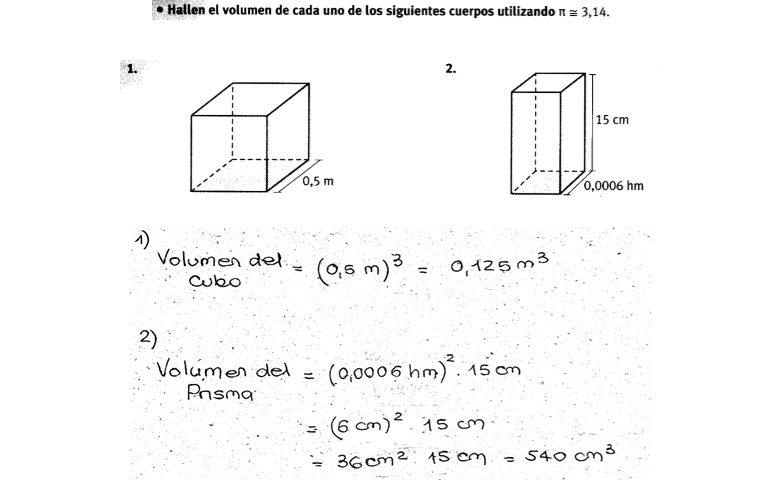 • Hallen el volumen de cada uno de los siguientes cuerpos utilizando π ≅ 3,14.
1.
2.
15 cm
0,5 m
0,0006 hm
1)
Volumen del = (0,5 m)³ = 0,125 m³
Cubo
2)
Volumen del = (0,0006 hm)². 15 cm
Prisma
= (6 cm)² . 15 cm
= 36 cm² . 15 cm = 540 cm³